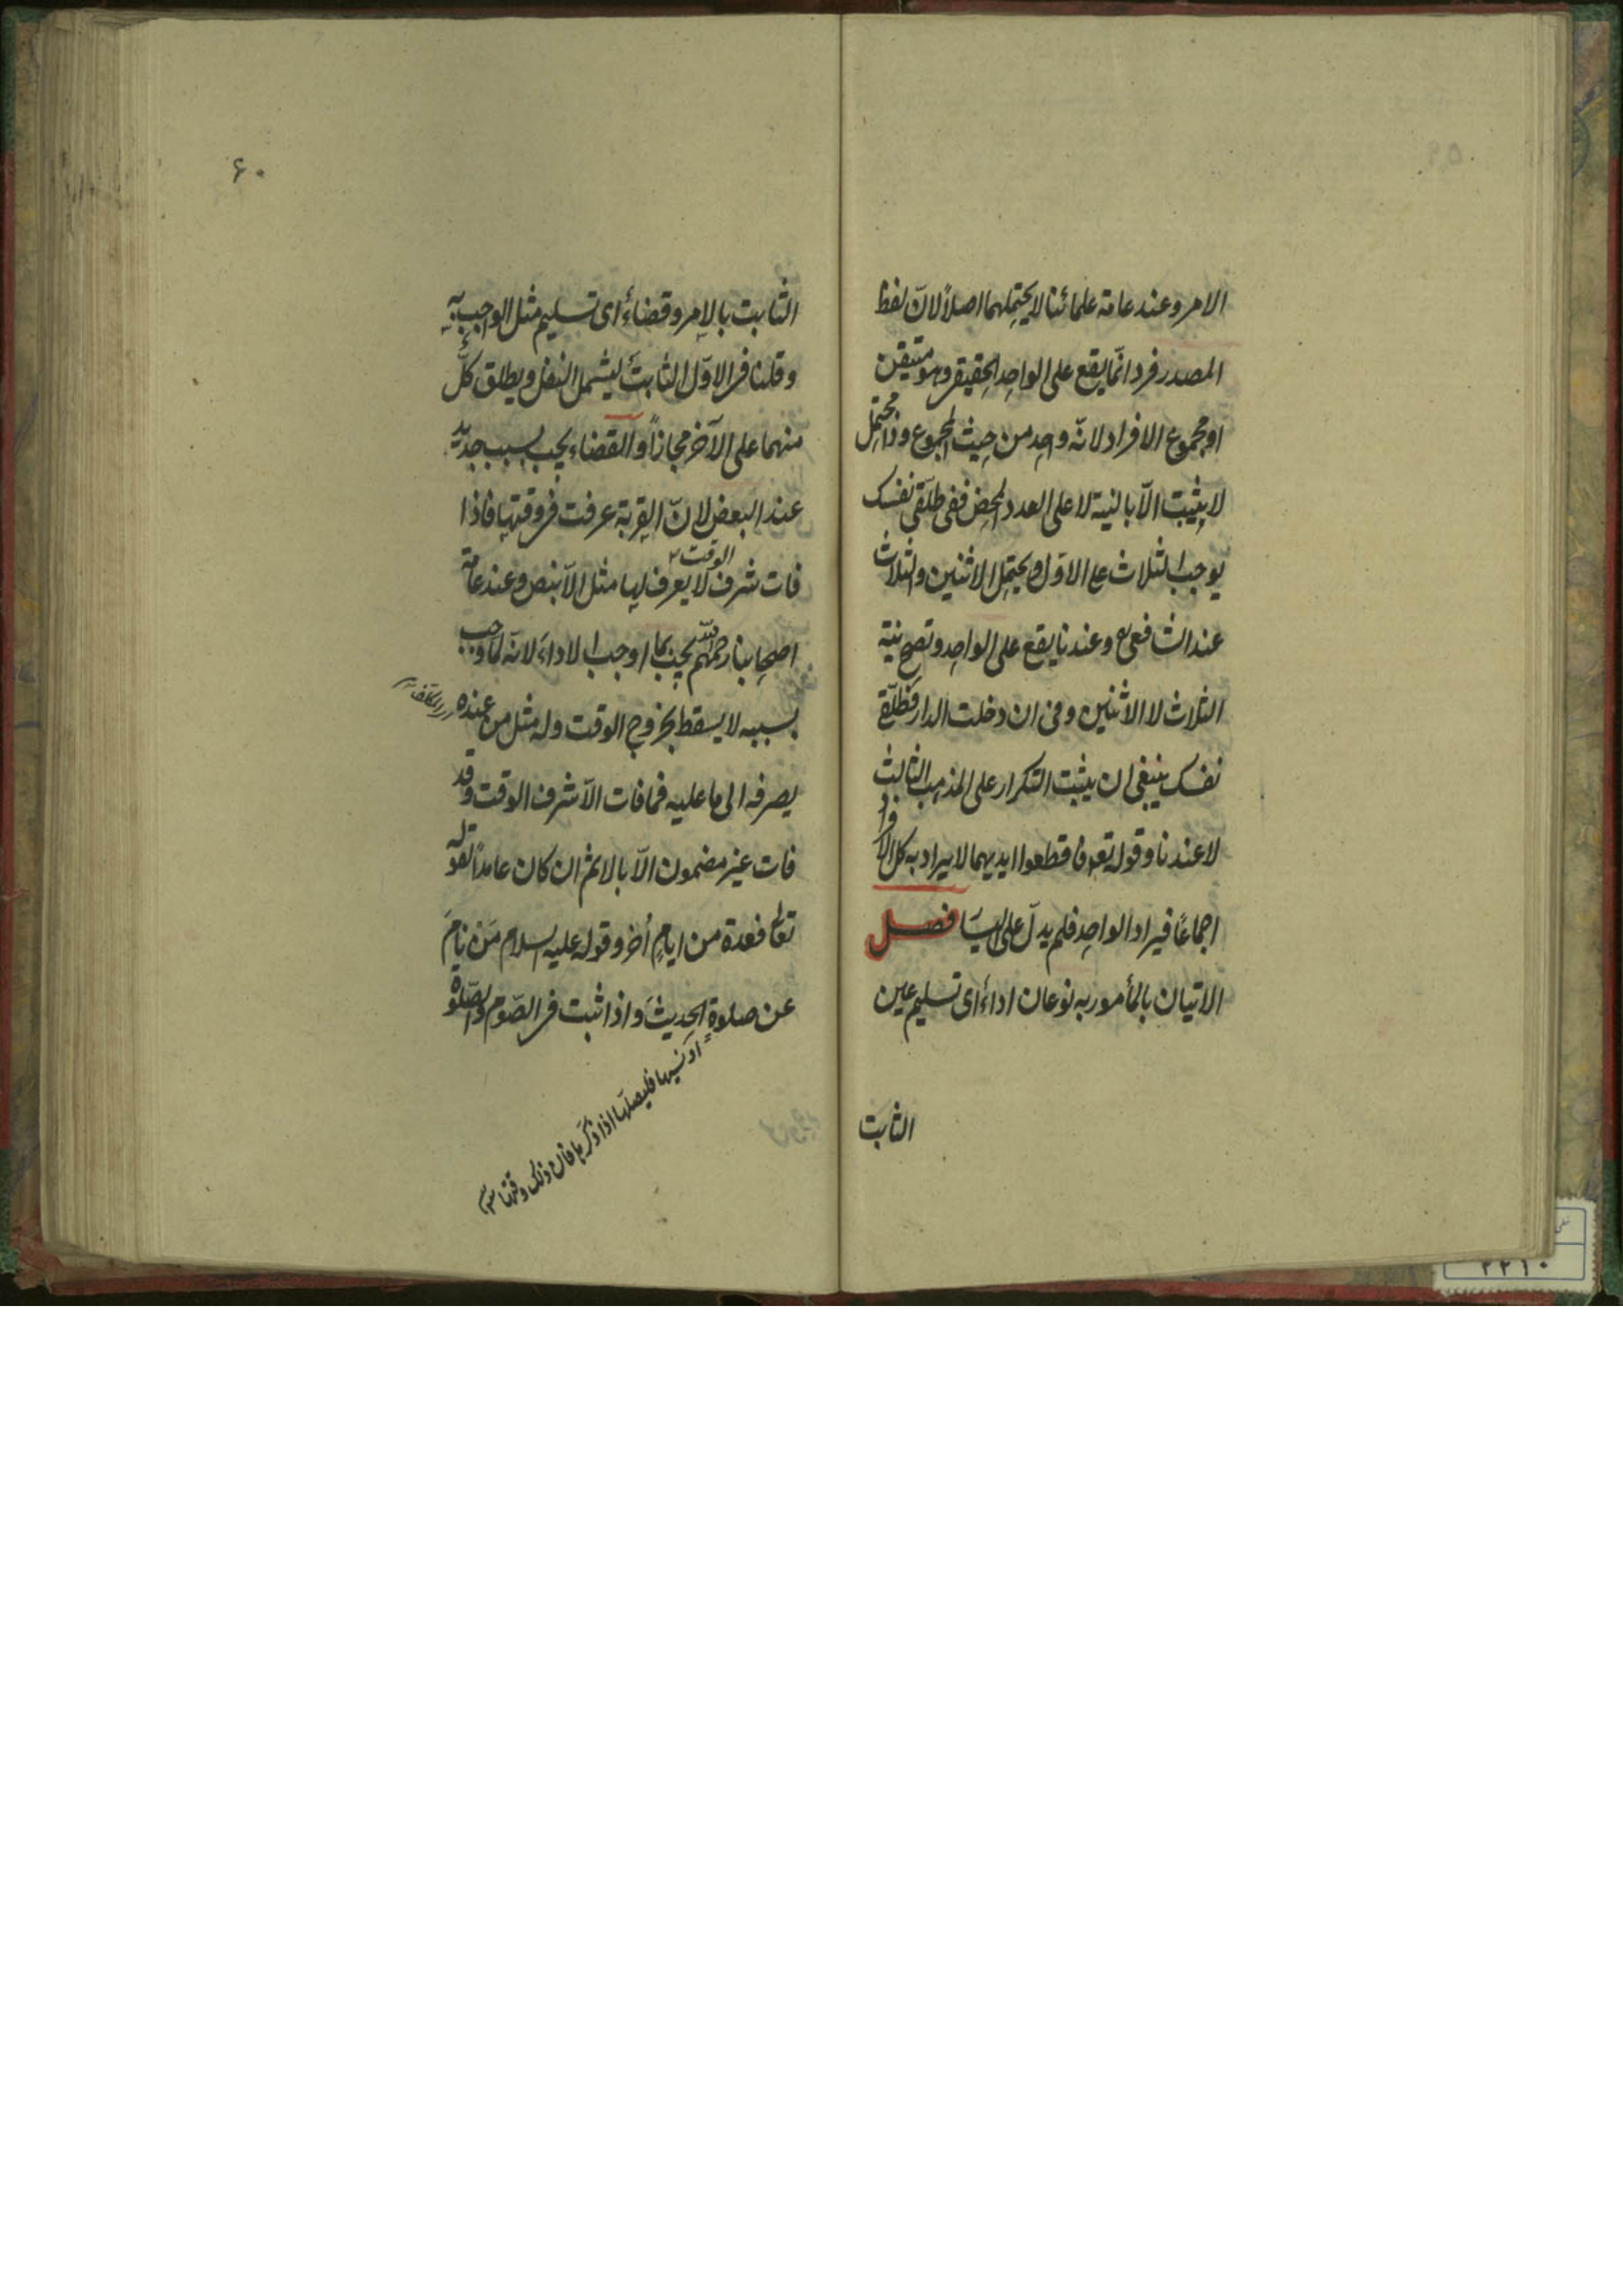 الامر وعند عامة علمائنا لا يحتملهما اصلاً لانّ لفظ
المصدر فرد انّما يقع على الواحد الحقيقى وهو متيقن
او مجموع الافراد لانّه واحد من حيث المجموع وذا محتمل
لا يثبت الّا بالنية لا على العدد المحض ففى طلّقى نفسك
يوجب الثلاث على الاوّل ويحتمل الاثنين والثلاث
عند الشافعى وعندنا يقع على الواحد وتصح نية
الثلاث لا الاثنين وفى ان دخلت الدار فطلّقى
نفسك ينبغى ان يثبت التكرار على المذهب الثالث
لا عندنا وقوله تعالى فاقطعوا ايديهما لا يراد به كل الافراد
اجماعًا فيراد الواحد فلم يدلّ على اليسار فصل
الاتيان بالمأمور به نوعان اداءً اى تسليم عين
الثابت
۶۰
الثابت بالامر وقضاءً اى تسليم مثل الواجب به
وقلنا فى الاوّل الثابت ليشمل النفل ويطلق كلٌّ
منهما على الآخر مجازاً والقضاء يجب بسبب جديد
عند البعض لانّ القربة عرفت فى وقتها فاذا
فات شرف الوقت لا يعرف لها مثل الّا بنص وعند عامة
اصحابنا رحمهم الله يجب بما اوجب الاداء لانّه لما وجب
بسببه لا يسقط بخروج الوقت وله مثل من عنده
يصرفه الى ما عليه فما فات الّا شرف الوقت وقد
فات غير مضمون الّا بالاثم ان كان عامداً لقوله
تعالى فعدة من ايامٍ اُخر وقوله عليه السلام مَن نامَ
عن صلوةٍ الحديث واذا ثبت فى الصّوم والصّلوة
او نسيها فليصلّها اذا ذكرها فانّ ذلك وقتها